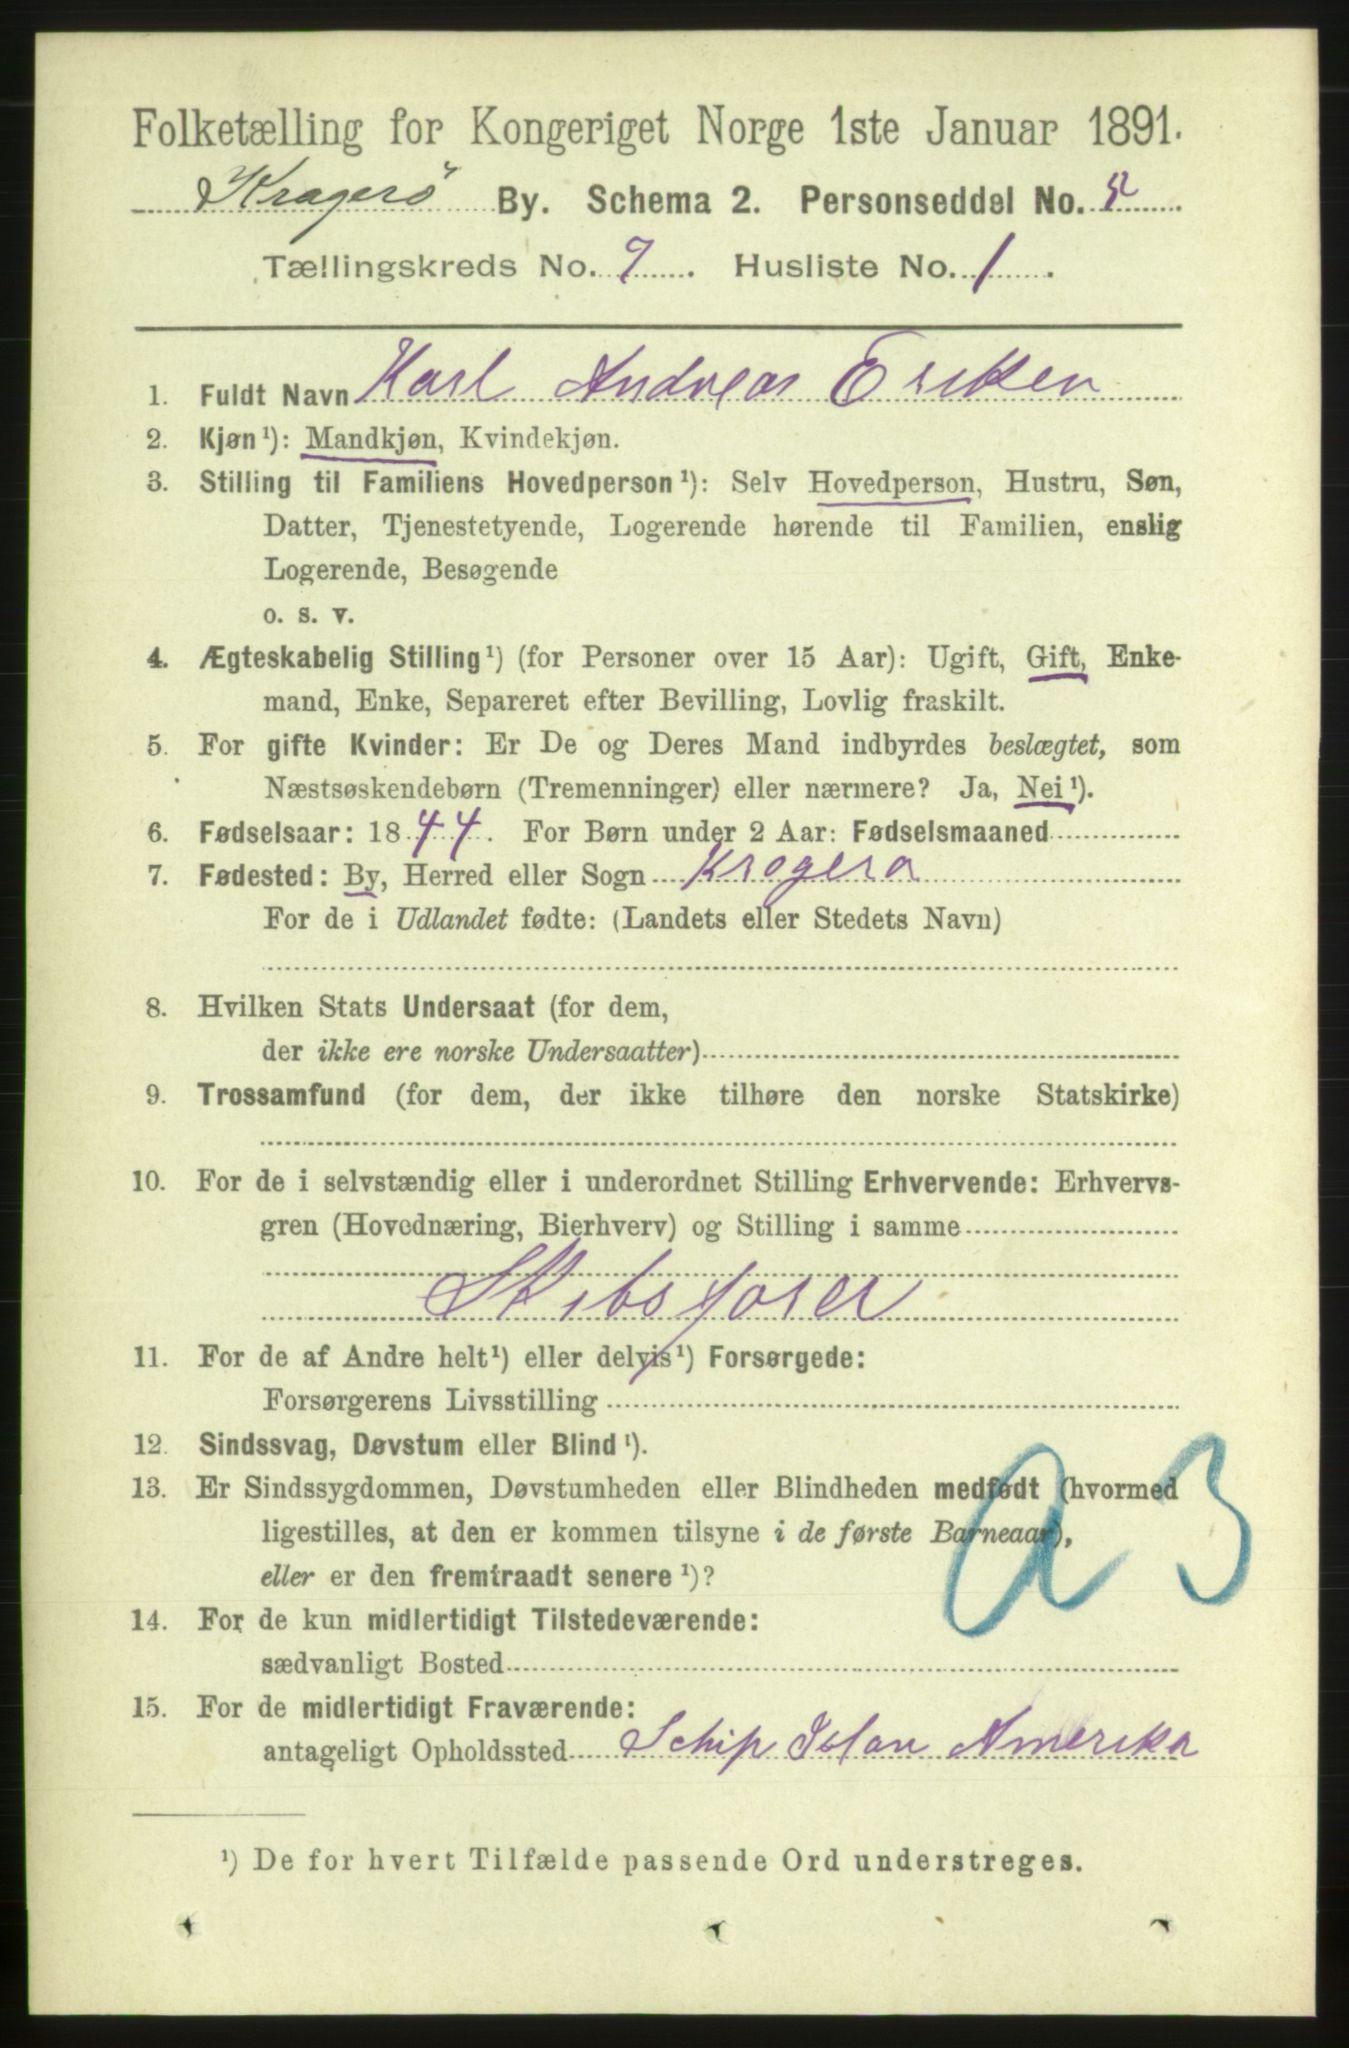 Folketælling for Kongeriget Norge 1ste Januar 1891.
Kragerö By. Schema 2. Personseddel No. 5
Tællingskreds No. 7. Husliste No. 1.
1. Fuldt Navn Karl Andreas Eriksen
2. Kjøn ¹): Mandkjøn, Kvindekjøn.
3. Stilling til Familiens Hovedperson ¹): Selv Hovedperson, Hustru, Søn,
Datter, Tjenestetyende, Logerende hørende til Familien, enslig
Logerende, Besøgende
o. s. v.
4. Ægteskabelig Stilling ¹) (for Personer over 15 Aar): Ugift, Gift, Enke-
mand, Enke, Separeret efter Bevilling, Lovlig fraskilt.
5. For gifte Kvinder: Er De og Deres Mand indbyrdes beslægtet, som
Næstsøskendebørn (Tremenninger) eller nærmere? Ja, Nei ¹).
6. Fødselsaar: 1844. For Børn under 2 Aar: Fødselsmaaned
7. Fødested: By, Herred eller Sogn Kragerø
For de i Udlandet fødte: (Landets eller Stedets Navn)
8. Hvilken Stats Undersaat (for dem,
der ikke ere norske Undersaatter)
9. Trossamfund (for dem, der ikke tilhøre den norske Statskirke)
10. For de i selvstændig eller i underordnet Stilling Erhvervende: Erhvervs-
gren (Hovednæring, Bierhverv) og Stilling i samme
Skibsförer
11. For de af Andre helt ¹) eller delvis ¹) Forsørgede:
Forsørgerens Livsstilling
12. Sindssvag, Døvstum eller Blind ¹).
13. Er Sindssygdommen, Døvstumheden eller Blindheden medfødt (hvormed
ligestilles, at den er kommen tilsyne i de første Barneaar),
eller er den fremtraadt senere ¹)?
a 3
14. For de kun midlertidigt Tilstedeværende:
sædvanligt Bosted
15. For de midlertidigt Fraværende:
antageligt Opholdssted Schip Islan Amerika
¹) De for hvert Tilfælde passende Ord understreges.